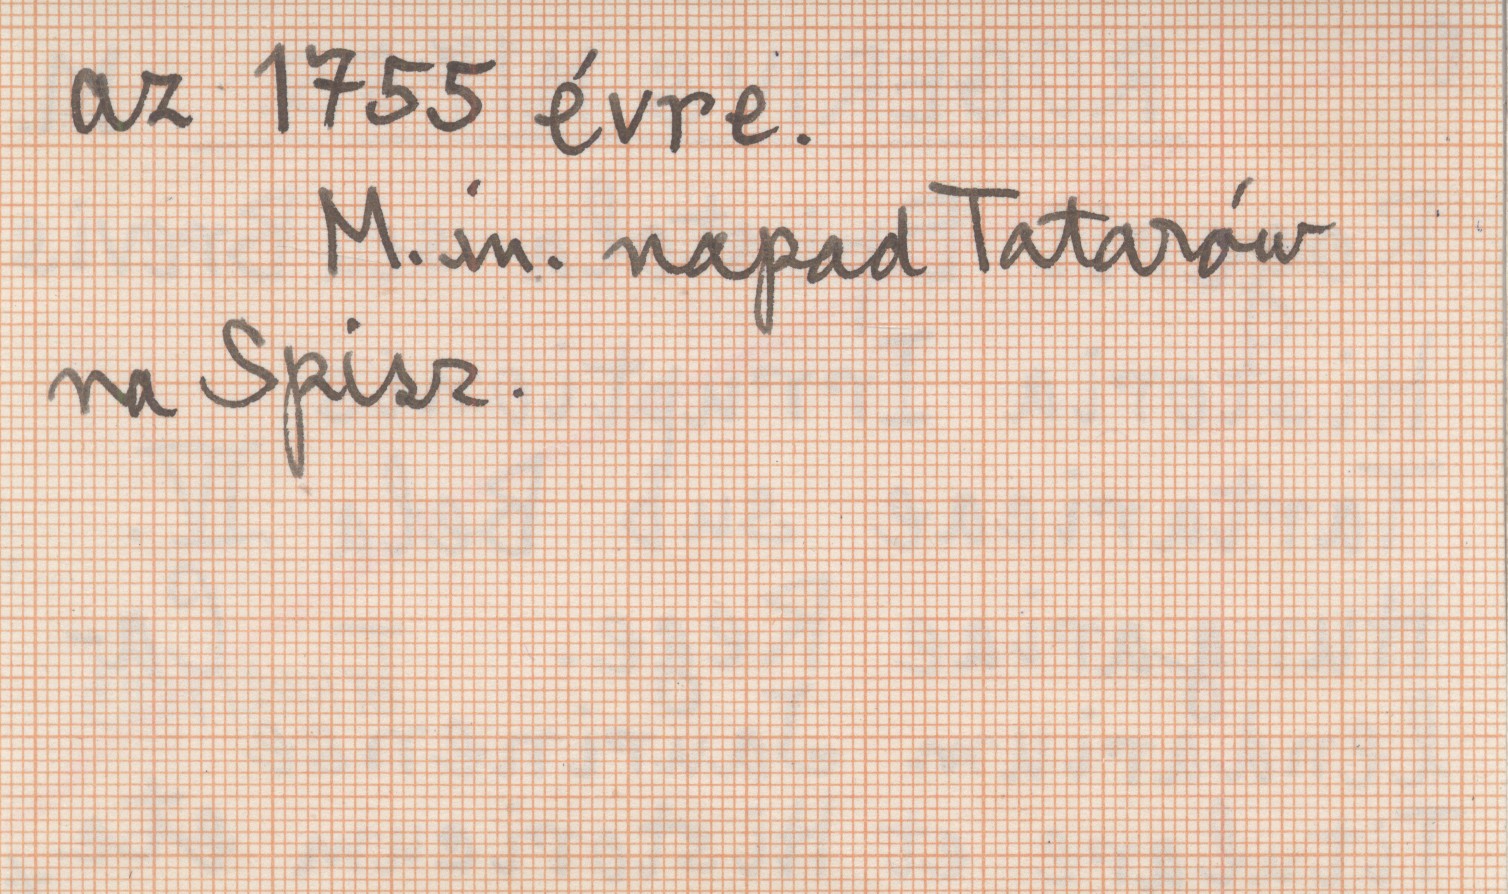 az 1755 évre.
M.in. napad Tatarów
na Spisz.